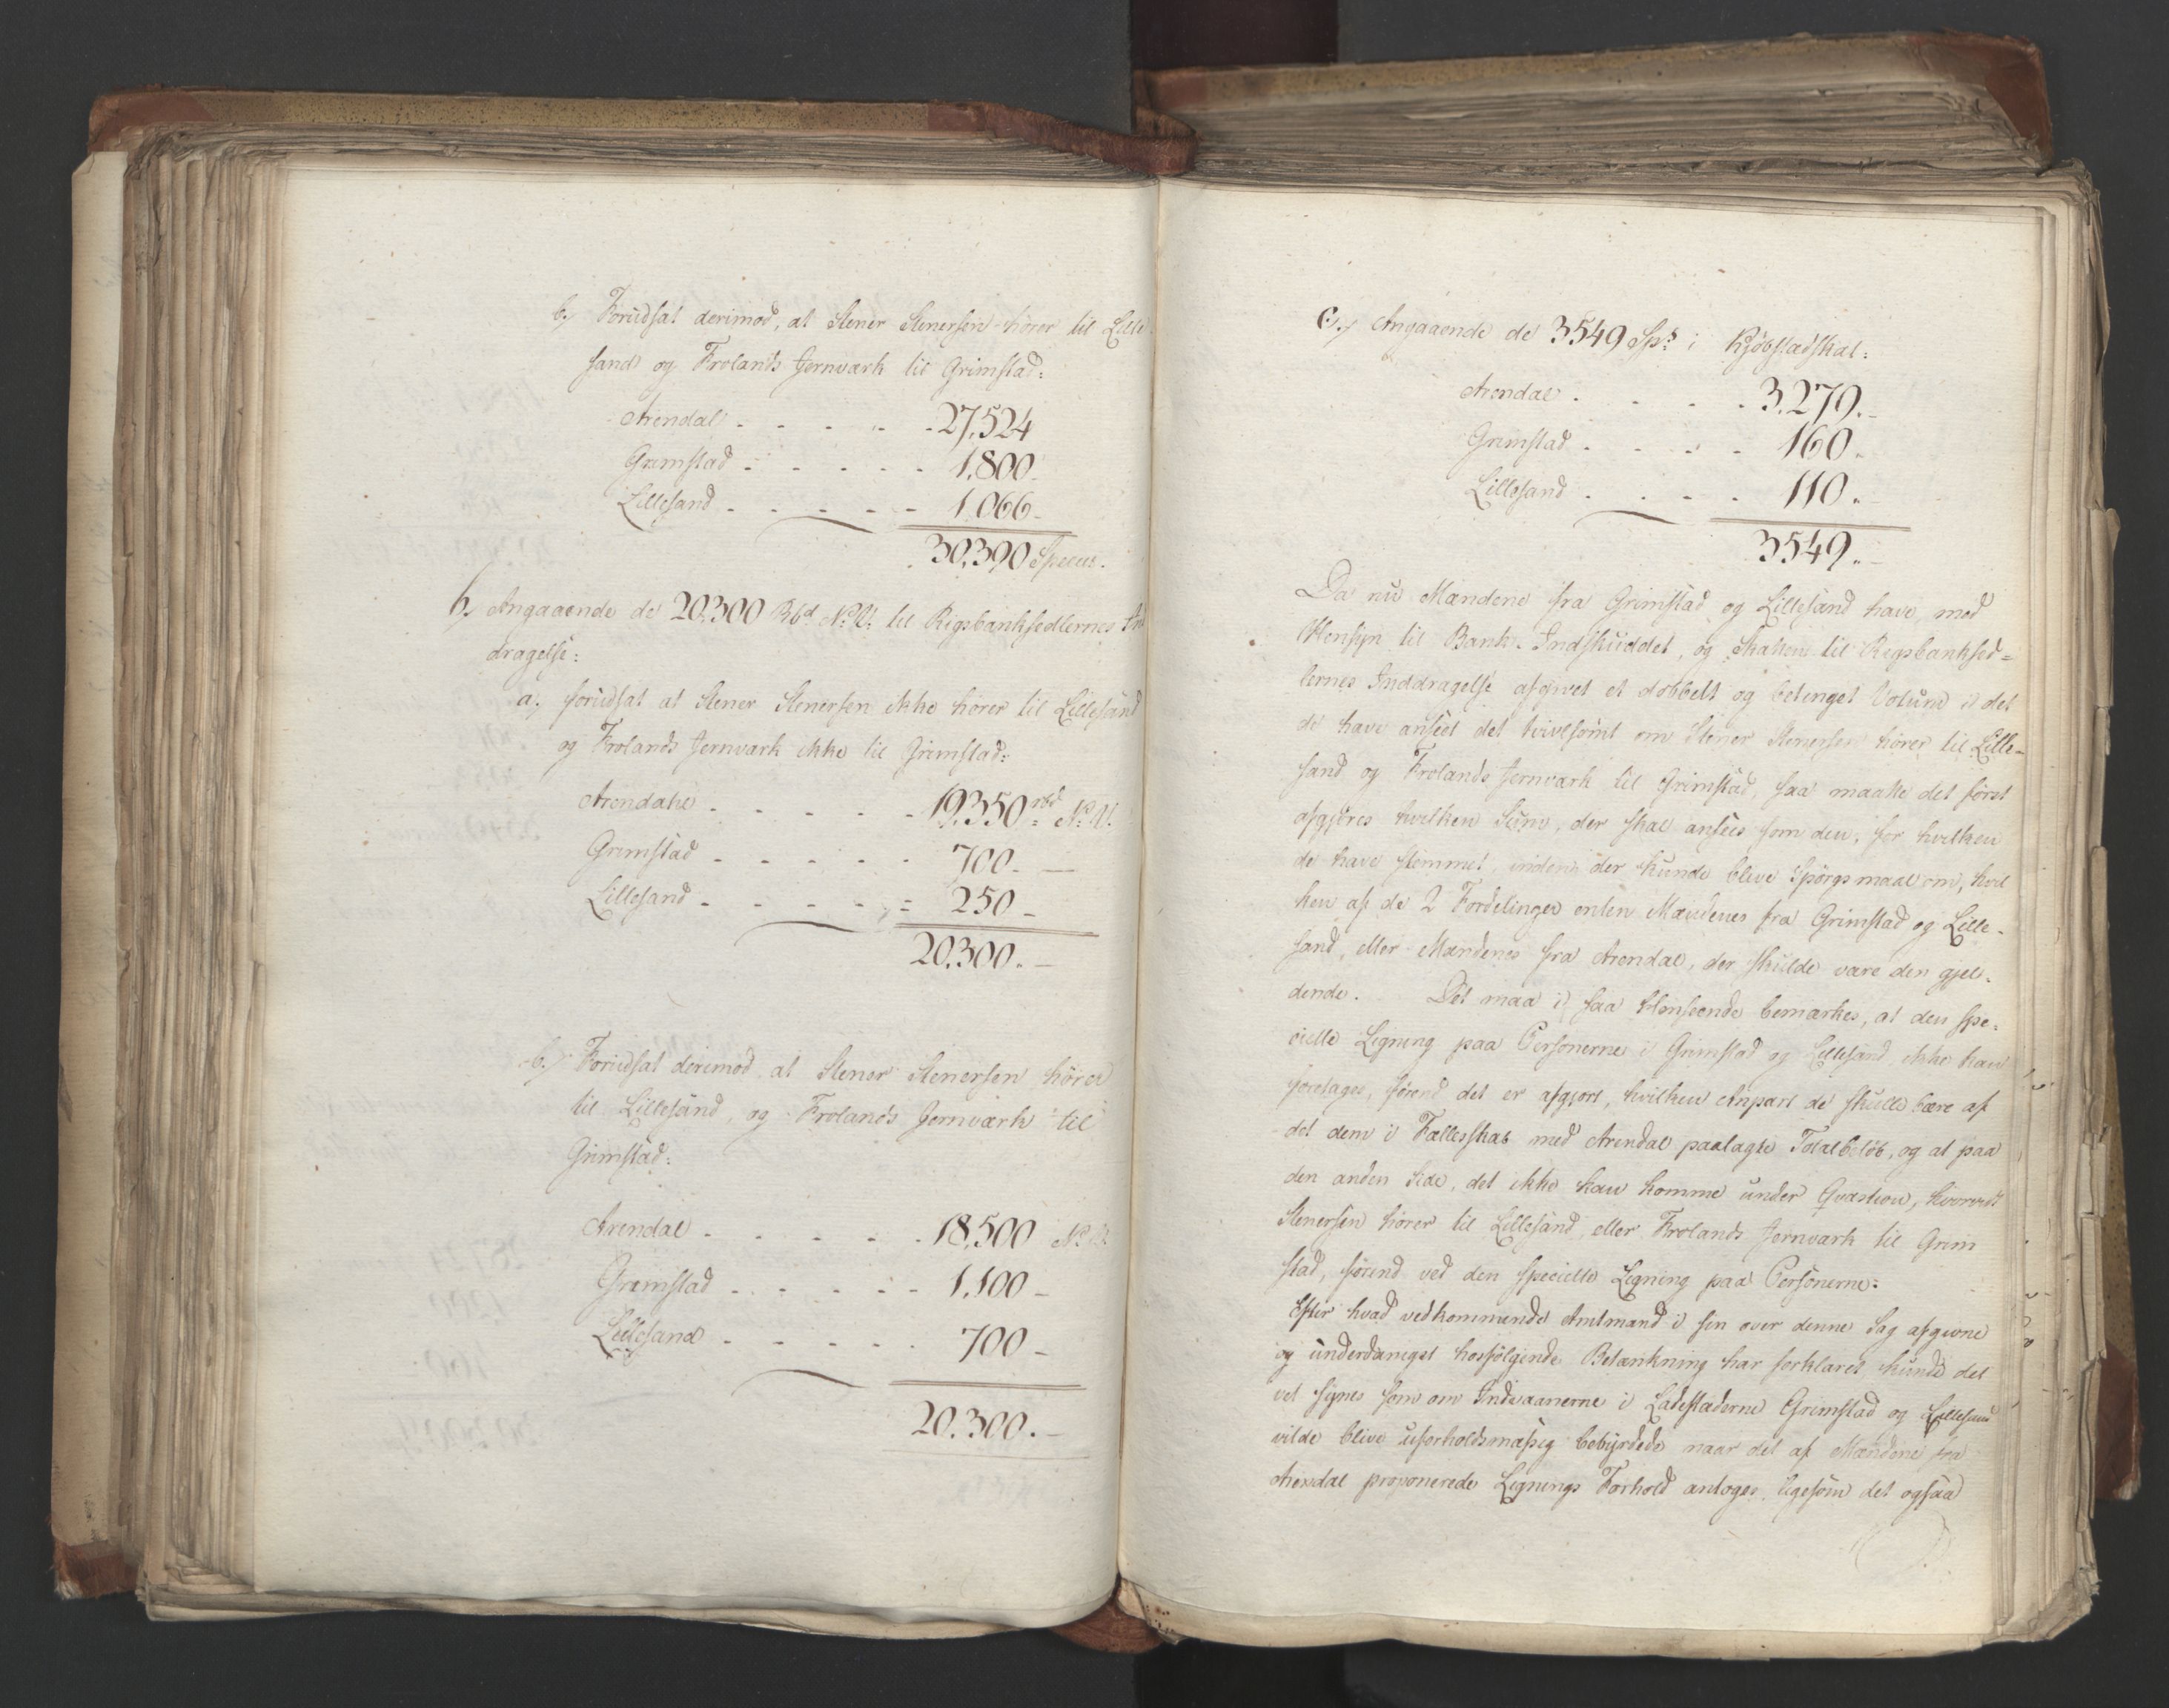 b.) Forudsat derimod, at Stener Stenersen hører til Lille
sand og Frolands Jernværk til Grimstad:
Arendal - - - - - 27,524
Grimstad - - - - - 1,800
Lillesand - - - - - 1,066 -
30,390 Specier.
b, Angaaende de 20,300 Rbd N: V: til Rigsbanksedlernes Ind
dragelse:
a., forudsat at Stener Stenersen ikke hører til Lillesand
og Frolands Jernværk ikke til Grimstad:
Arendahl - - - - - 19,350 rbd N: V.
Grimstad - - - - - 700. —
Lillesand - - - - - 250 -
20,300. —
b.) Forudsat derimod at Stener Stenersen hører
til Lillesand, og Frolands Jernværk til
Grimstad:
Arendal - - - - - 18,500 N: V.
Grimstad - - - - - 1,100 -
Lillesand - - - - - 700 -
20,300. -
c.) Angaaende de 3549 Sps: i Kjøbstadskat:
Arendal . - - - - 3,279. -
Grimstad . - - - 160.
Lillesand . - - - 110. -
3549. -
Da nu Mændene fra Grimstad og Lillesand have, med
Hensyn til Bank-Indskuddet, og Skatten til Rigsbanksed=
lernes Inddragelse afgivet et dobbelt og betinget Votum i det
de have anseet det tvivlsomt om Stener Stenersen hører til Lille-
sand og Frolands Jernværk til Grimstad, saa maatte det først
afgjøres hvilken Sum, der skal ansees som den, for hvilken
de have stemmet, inden der kunde blive Spørgsmaal om, hvil
ken af de 2 Fordelinger enten Mændenes fra Grimstad og Lille-
sand, eller Mændenes fra Arendal, der skulde være den gjel-
dende. Det maa i saa Henseende bemærkes, at den spe-
cielle Ligning paa Personerne i Grimstad og Lillesand ikke kan
foretages, førend det er afgjort, hvilken Anpart de skulle bære af
det dem i Fællesskab med Arendal paalagte Totalbeløb, og at paa
den anden Side, det ikke kan komme under Qvæstion, hvorvidt
Stenersen hører til Lillesand, eller Frolands Jernværk til Grim
stad, førend ved den specielle Ligning paa Personerne:
Efter hvad vedkommende Amtmand i sin over denne Sag afgivne
og underdanigst hosfølgende Betænkning har forklaret, kunde det
vel synes som om Indvaanerne i Ladestæderne Grimstad og Lillesand
vilde blive uforholdsmæssig bebyrdede naar det af Mændene fra
Arendal proponerede Lignings Forhold antoges, ligesom det ogsaa